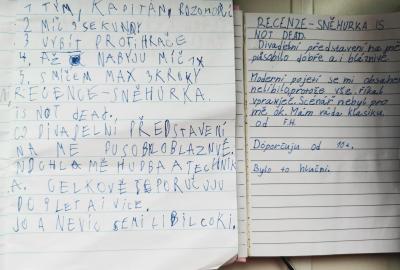 1 TÝM, KAPITÁN, ROZOHŘÍ
2 MÍČ 9 SEKUNDY
3 VYBÍT PROTIHRÁČE
4. AŽ NABYJU MÍČ 1X
5. S MÍČEM MAX 3 KROKY
RECENCE-SNĚHURKA.
is NOT dEAd.
CO DIVADELNÍ PŘEDSTAVENÍ
NA MĚ PUSOBNOBLAZNVĚ.
MĚ HUDBA A TECHNIK
A. CELKOVĚ PORUČUJU
DO 9 LET A i VÍCE.
JO A NEVÍC SEMI LÍBIL COKI.
RECENZE-SNĚHURKA IS
NOT DEAD.
Divadelní představení na mě
působilo dobře a i bláznivě.
Moderní pojetí se mi obsahem
nelíbilo, protože vše říkal
vpravěč. Scénář nebyl pro
mě ok. Mám ráda klasiku
od F.H.
Doporčuju od 10 z.
Bylo to hlučný.